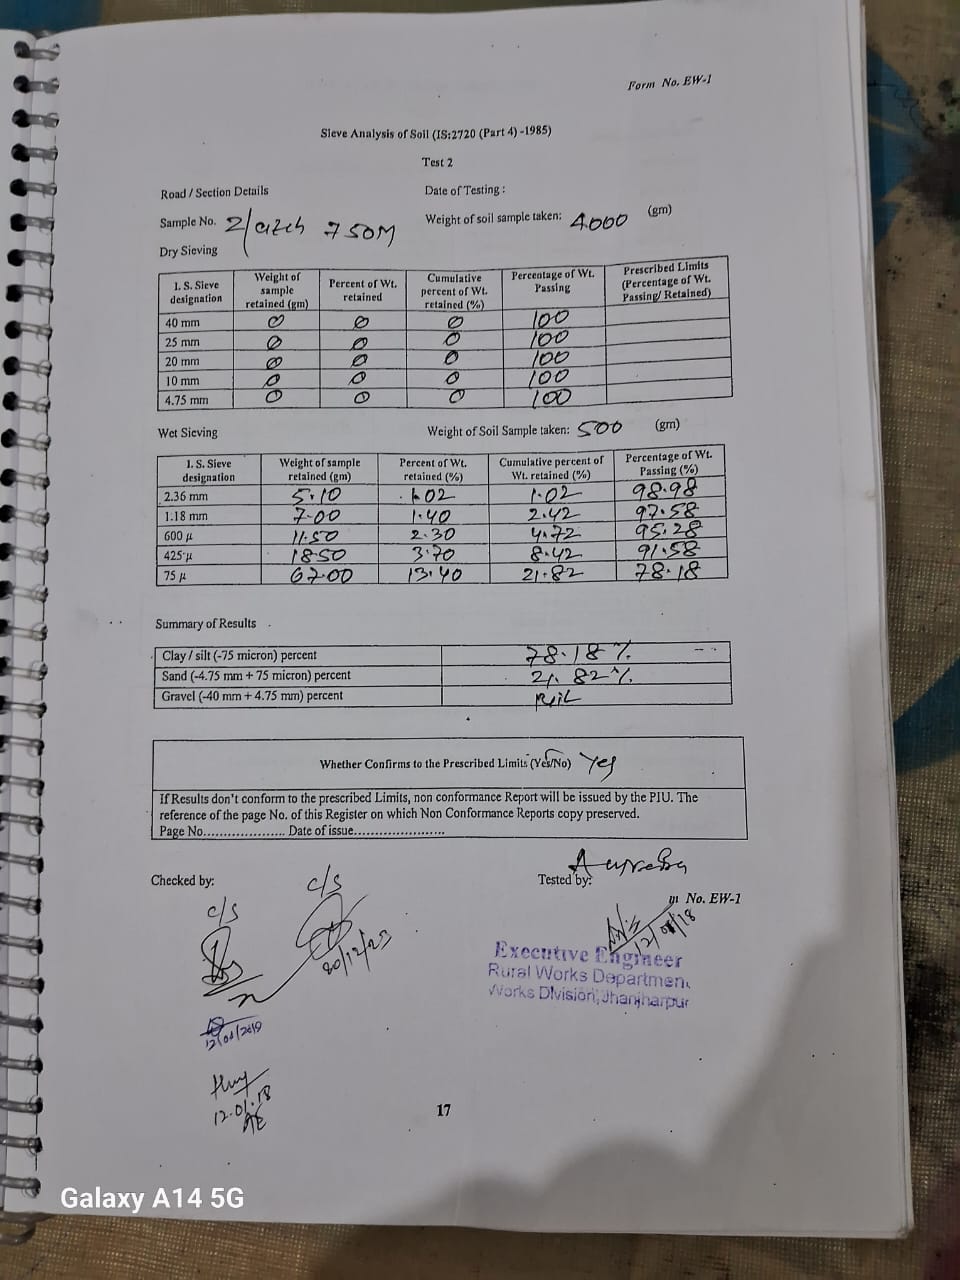 Form No. EW-1
Sieve Analysis of Soil (IS:2720 (Part 4) -1985)
Test 2
Road / Section Details Date of Testing :
Sample No. 2/ 750M Weight of soil sample taken: 4000 (gm)
Dry Sieving
I. S. Sieve designation Weight of sample retained (gm) Percent of Wt. retained Cumulative percent of Wt. retained (%) Percentage of Wt. Passing Prescribed Limits (Percentage of Wt. Passing/ Retained)
40 mm 0 0 0 100
25 mm 0 0 0 100
20 mm 0 0 0 100
10 mm 0 0 0 100
4.75 mm 0 0 0 100
Wet Sieving Weight of Soil Sample taken: 500 (gm)
I. S. Sieve designation Weight of sample retained (gm) Percent of Wt. retained (%) Cumulative percent of Wt. retained (%) Percentage of Wt. Passing (%)
2.36 mm 5.10 1.02 1.02 98.98
1.18 mm 7.00 1.40 2.42 97.58
600 µ 11.50 2.30 4.72 95.28
425 µ 18.50 3.70 8.42 91.58
75 µ 67.00 13.40 21.82 78.18
Summary of Results
Clay / silt (-75 micron) percent 78.18 %
Sand (-4.75 mm + 75 micron) percent 21.82 %
Gravel (-40 mm + 4.75 mm) percent Nil
Whether Confirms to the Prescribed Limits (Yes/No) Yes
If Results don't conform to the prescribed Limits, non conformance Report will be issued by the PIU. The
reference of the page No. of this Register on which Non Conformance Reports copy preserved.
Page No.................... Date of issue......................
Checked by: c/s Tested by:
c/s
m No. EW-1
20/12/23
12/01/18
Executive Engineer
Rural Works Department
Works Division, Jhanjharpur
12.01.18
AE
17
Galaxy A14 5G